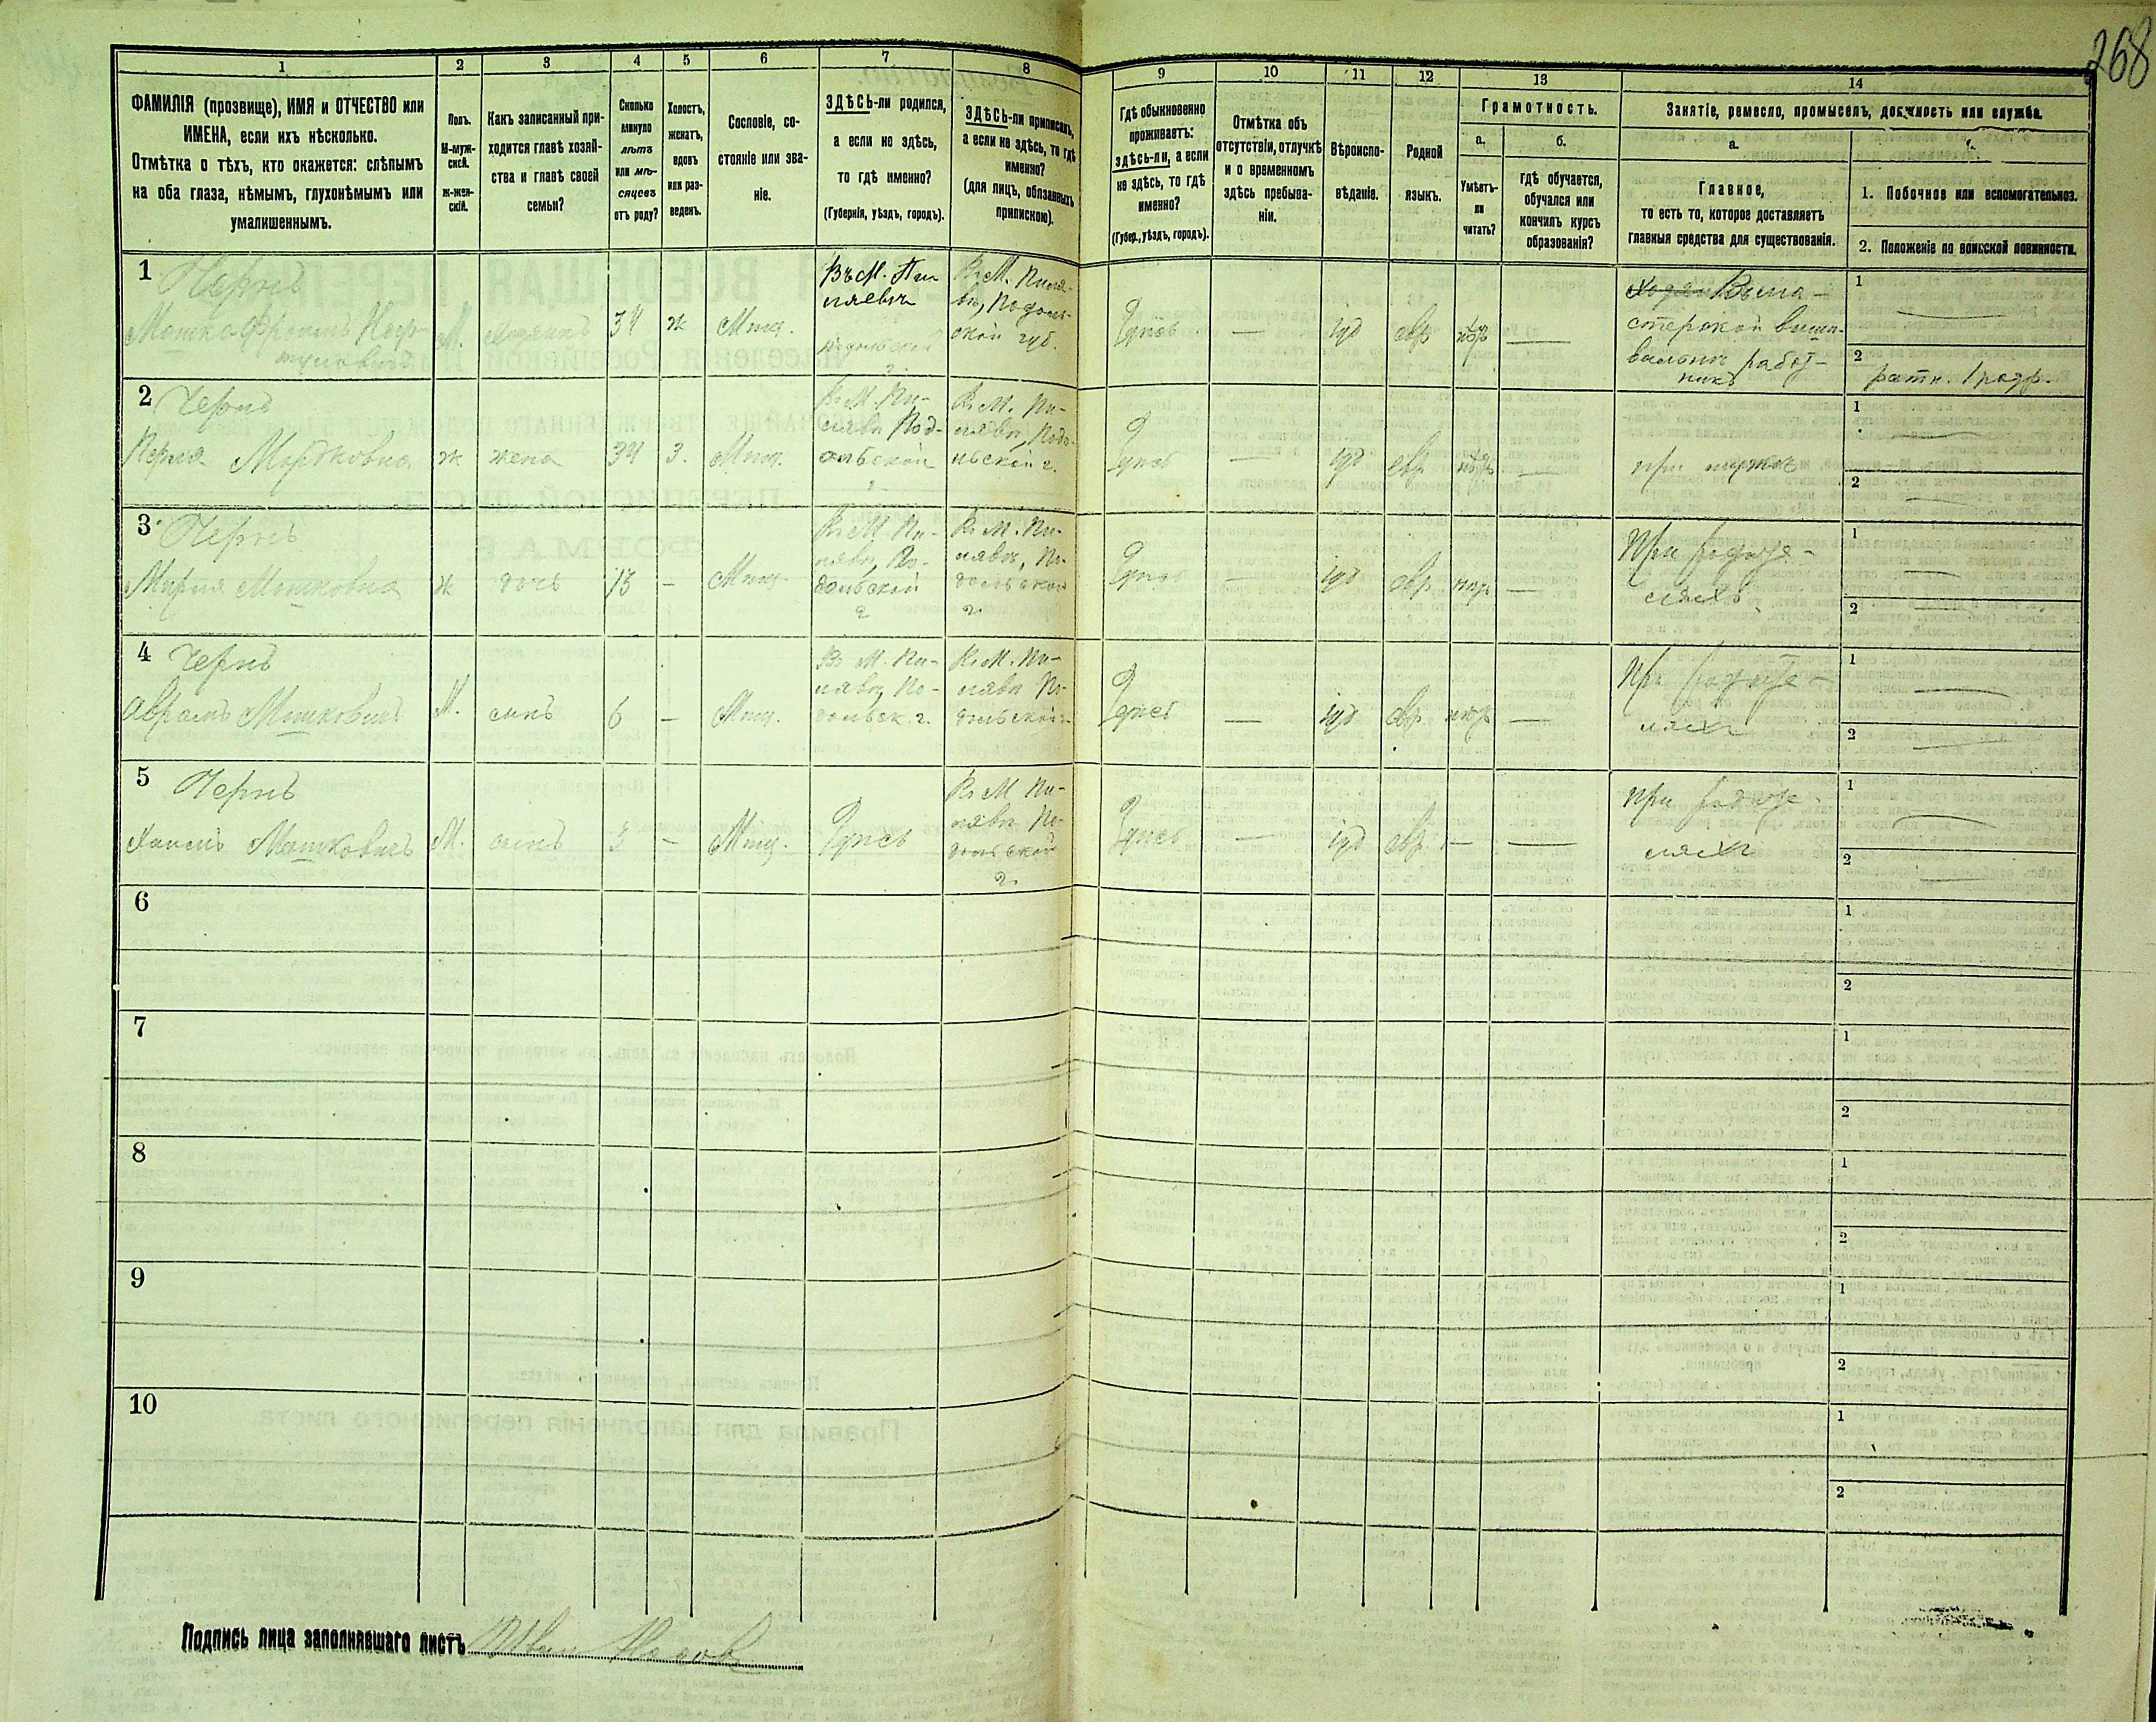 268
1 2 3 4 5 6 7 8 9 10 11 12 13 14
ФАМИЛІЯ (прозвище), ИМЯ и ОТЧЕСТВО или
ИМЕНА, если ихъ нѣсколько.
Отмѣтка о тѣхъ, кто окажется: слѣпымъ
на оба глаза, нѣмымъ, глухонѣмымъ или
умалишеннымъ.
Полъ.
М-муж-
ской.
Ж-жен-
скій.
Какъ записанный при-
ходится главѣ хозяй-
ства и главѣ своей
семьи?
Сколько
минуло
лѣтъ
или мѣ-
сяцевъ
отъ роду?
Холостъ,
женатъ,
вдовъ
или раз-
веденъ.
Сословіе, со-
стояніе или зва-
ніе.
ЗДѢСЬ-ли родился,
а если не здѣсь,
то гдѣ именно?
(Губернія, уѣздъ, городъ).
ЗДѢСЬ-ли приписанъ,
а если не здѣсь, то гдѣ
именно?
(для лицъ, обязанныхъ
припискою).
Гдѣ обыкновенно
проживаетъ:
здѣсь-ли, а если
не здѣсь, то гдѣ
именно?
(Губер., уѣздъ, городъ).
Отмѣтка объ
отсутствіи, отлучкѣ
и о временномъ
здѣсь пребыва-
ніи.
Вѣроиспо-
вѣданіе.
Родной
языкъ.
Грамотность.
а.
Умѣетъ-
ли
читать?
б.
гдѣ обучается,
обучался или
кончилъ курсъ
образованія?
Занятіе, ремесло, промыселъ, должность или служба.
а.
Главное,
то есть то, которое доставляетъ
главныя средства для существованія.
1. Побочное или вспомогательное.
2. Положеніе по воинской повинности.
1 Чернъ
Мошко Фроимъ
М. хозяинъ 34 ж Мѣщ.
Въ М. Пи-
лявѣ, Подоль-
ской губ.
Здѣсь — іуд евр —
стерской
работ-
никъ
1 —
2 ратн. 1 разр.
2 Чернъ
Перля Мордковна ж жена 34 З. Мѣщ.
Въ М. Пи-
лявѣ Под-
ольской
г.
Въ М. Пи-
лявѣ, Подо-
льской г.
Здѣсь — іуд евр — при мужѣ
1 —
2 —
3 Чернъ
Мошковна ж дочь 13 — Мѣщ.
Въ М. Пи-
лявѣ, По-
дольской
г.
Въ М. Пи-
лявѣ, По-
дольской
г.
Здѣсь — іуд евр —
При родите-
ляхъ
1 —
2 —
4 Чернъ
Аврамъ Мошковичъ М. сынъ 6 — Мѣщ.
Въ М. Пи-
лявѣ, По-
дольск. г.
Въ М. Пи-
лявѣ По-
дольской г.
Здѣсь — іуд евр —
При родите-
ляхъ
1 —
2 —
5 Чернъ
Хаимъ Мошковичъ М. сынъ 2 — Мѣщ. Здѣсь
Въ М Пи-
лявѣ По-
дольской
г.
Здѣсь — іуд евр. — —
При родите-
ляхъ
1 —
2 —
6 1
2
7 1
2
8 1
2
9 1
2
10 1
2
Подпись лица заполнявшаго листъ